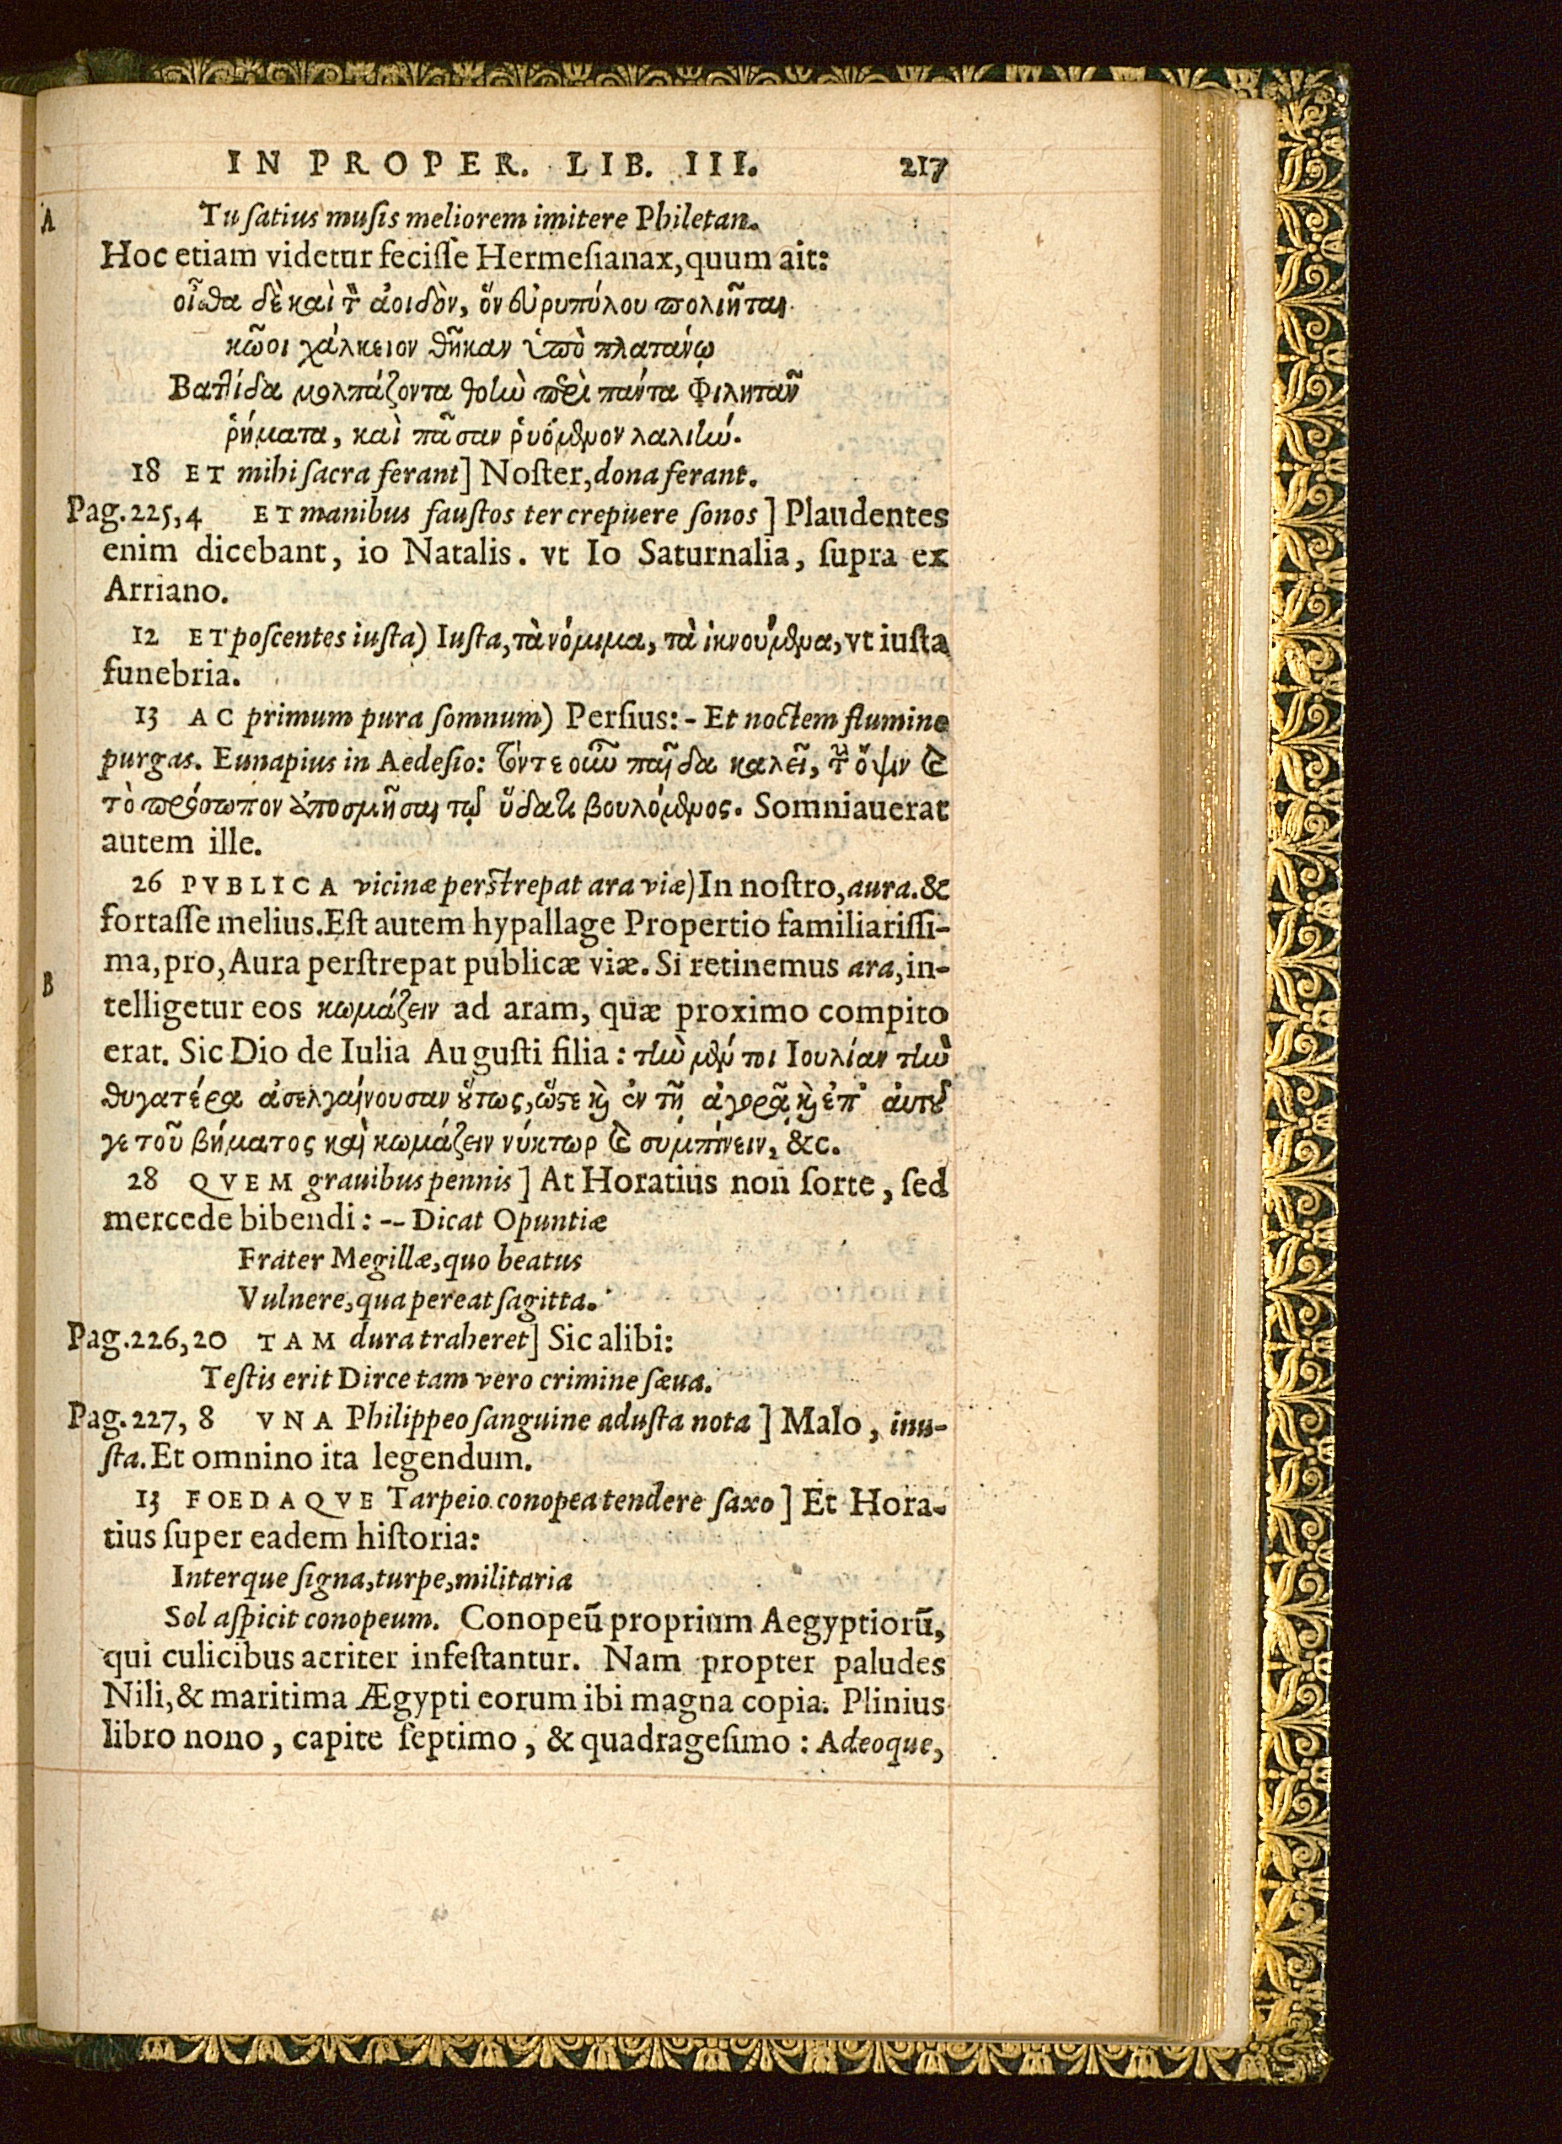 IN PROPER. LIB. III. 217
A
Tu ſatius muſis meliorem imitere Philetan.
Hoc etiam videtur feciſſe Hermeſianax, quum ait:
οἶσθα δὲ καὶ τὸν ἀοιδὸν, ὅν εὐρυπύλου πολιῆται
κῶοι χάλκειον θῆκαν ὑπὸ πλατάνῳ
Βαττίδα μολπάζοντα θοὴν περὶ πάντα Φιλητᾶν
ῥήματα, καὶ πᾶσαν ῥυόμενον λαλιήν.
18 ET mihi ſacra ferant] Noſter, dona ferant.
Pag. 225, 4 ET manibus fauſtos ter crepuere ſonos] Plaudentes
enim dicebant, io Natalis. vt Io Saturnalia, ſupra ex
Arriano.
12 ET poſcentes iuſta) Iuſta, τὰ νόμιμα, τὰ ἱκνούμενα, vt iuſta
funebria.
13 AC primum pura ſomnum) Perſius: - Et noctem flumine
purgas. Eunapius in Aedeſio: τόντε οὖν παῖδα καλεῖ, τὴν ὄψιν καὶ
τὸ πρόσωπον ἀποσμῆσαι τῷ ὕδατι βουλόμενος. Somniauerat
autem ille.
26 PVBLICA vicinæ perſtrepat ara viæ) In noſtro, aura. &
fortaſſe melius. Eſt autem hypallage Propertio familiariſſi-
ma, pro, Aura perſtrepat publicæ viæ. Si retinemus ara, in-
B
telligetur eos κωμάζειν ad aram, quæ proximo compito
erat. Sic Dio de Iulia Auguſti filia: τὴν μέν τοι Ιουλίαν τὴν
θυγατέρα ἀσελγαίνουσαν ὅτως, ὥστε καὶ ἐν τῇ ἀγορᾷ καὶ ἐπ' αὐτοῦ
γε τοῦ βήματος καὶ κωμάζειν νύκτωρ καὶ συμπίνειν, &c.
28 QVEM grauibus pennis] At Horatius non ſorte, ſed
mercede bibendi: -- Dicat Opuntiæ
Frater Megillæ, quo beatus
Vulnere, qua pereat ſagitta.
Pag. 226, 20 TAM dura traheret] Sic alibi:
Teſtis erit Dirce tam vero crimine ſæua.
Pag. 227, 8 VNA Philippeo ſanguine aduſta nota] Malo, inu-
ſta. Et omnino ita legendum.
13 FOEDAQVE Tarpeio conopea tendere ſaxo] Et Hora-
tius ſuper eadem hiſtoria:
Interque ſigna, turpe, militaria
Sol aſpicit conopeum. Conopeũ proprium Aegyptiorũ,
qui culicibus acriter infeſtantur. Nam propter paludes
Nili, & maritima Ægypti eorum ibi magna copia. Plinius
libro nono, capite ſeptimo, & quadrageſimo: Adeoque,